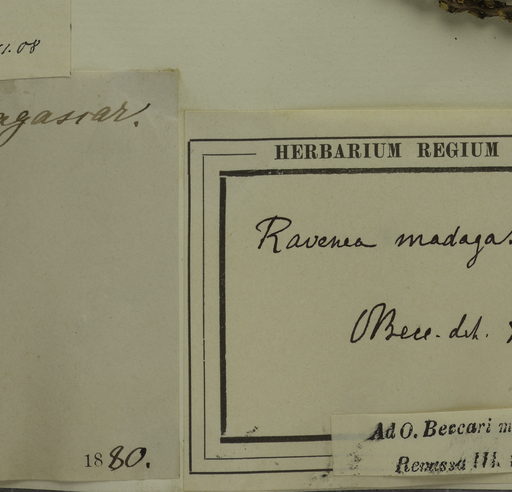 1.08
agascar.
1880.
HERBARIUM REGIUM
Ravenea madagas
OBecc. det.
Ad O. Beccari m
Remissa III.